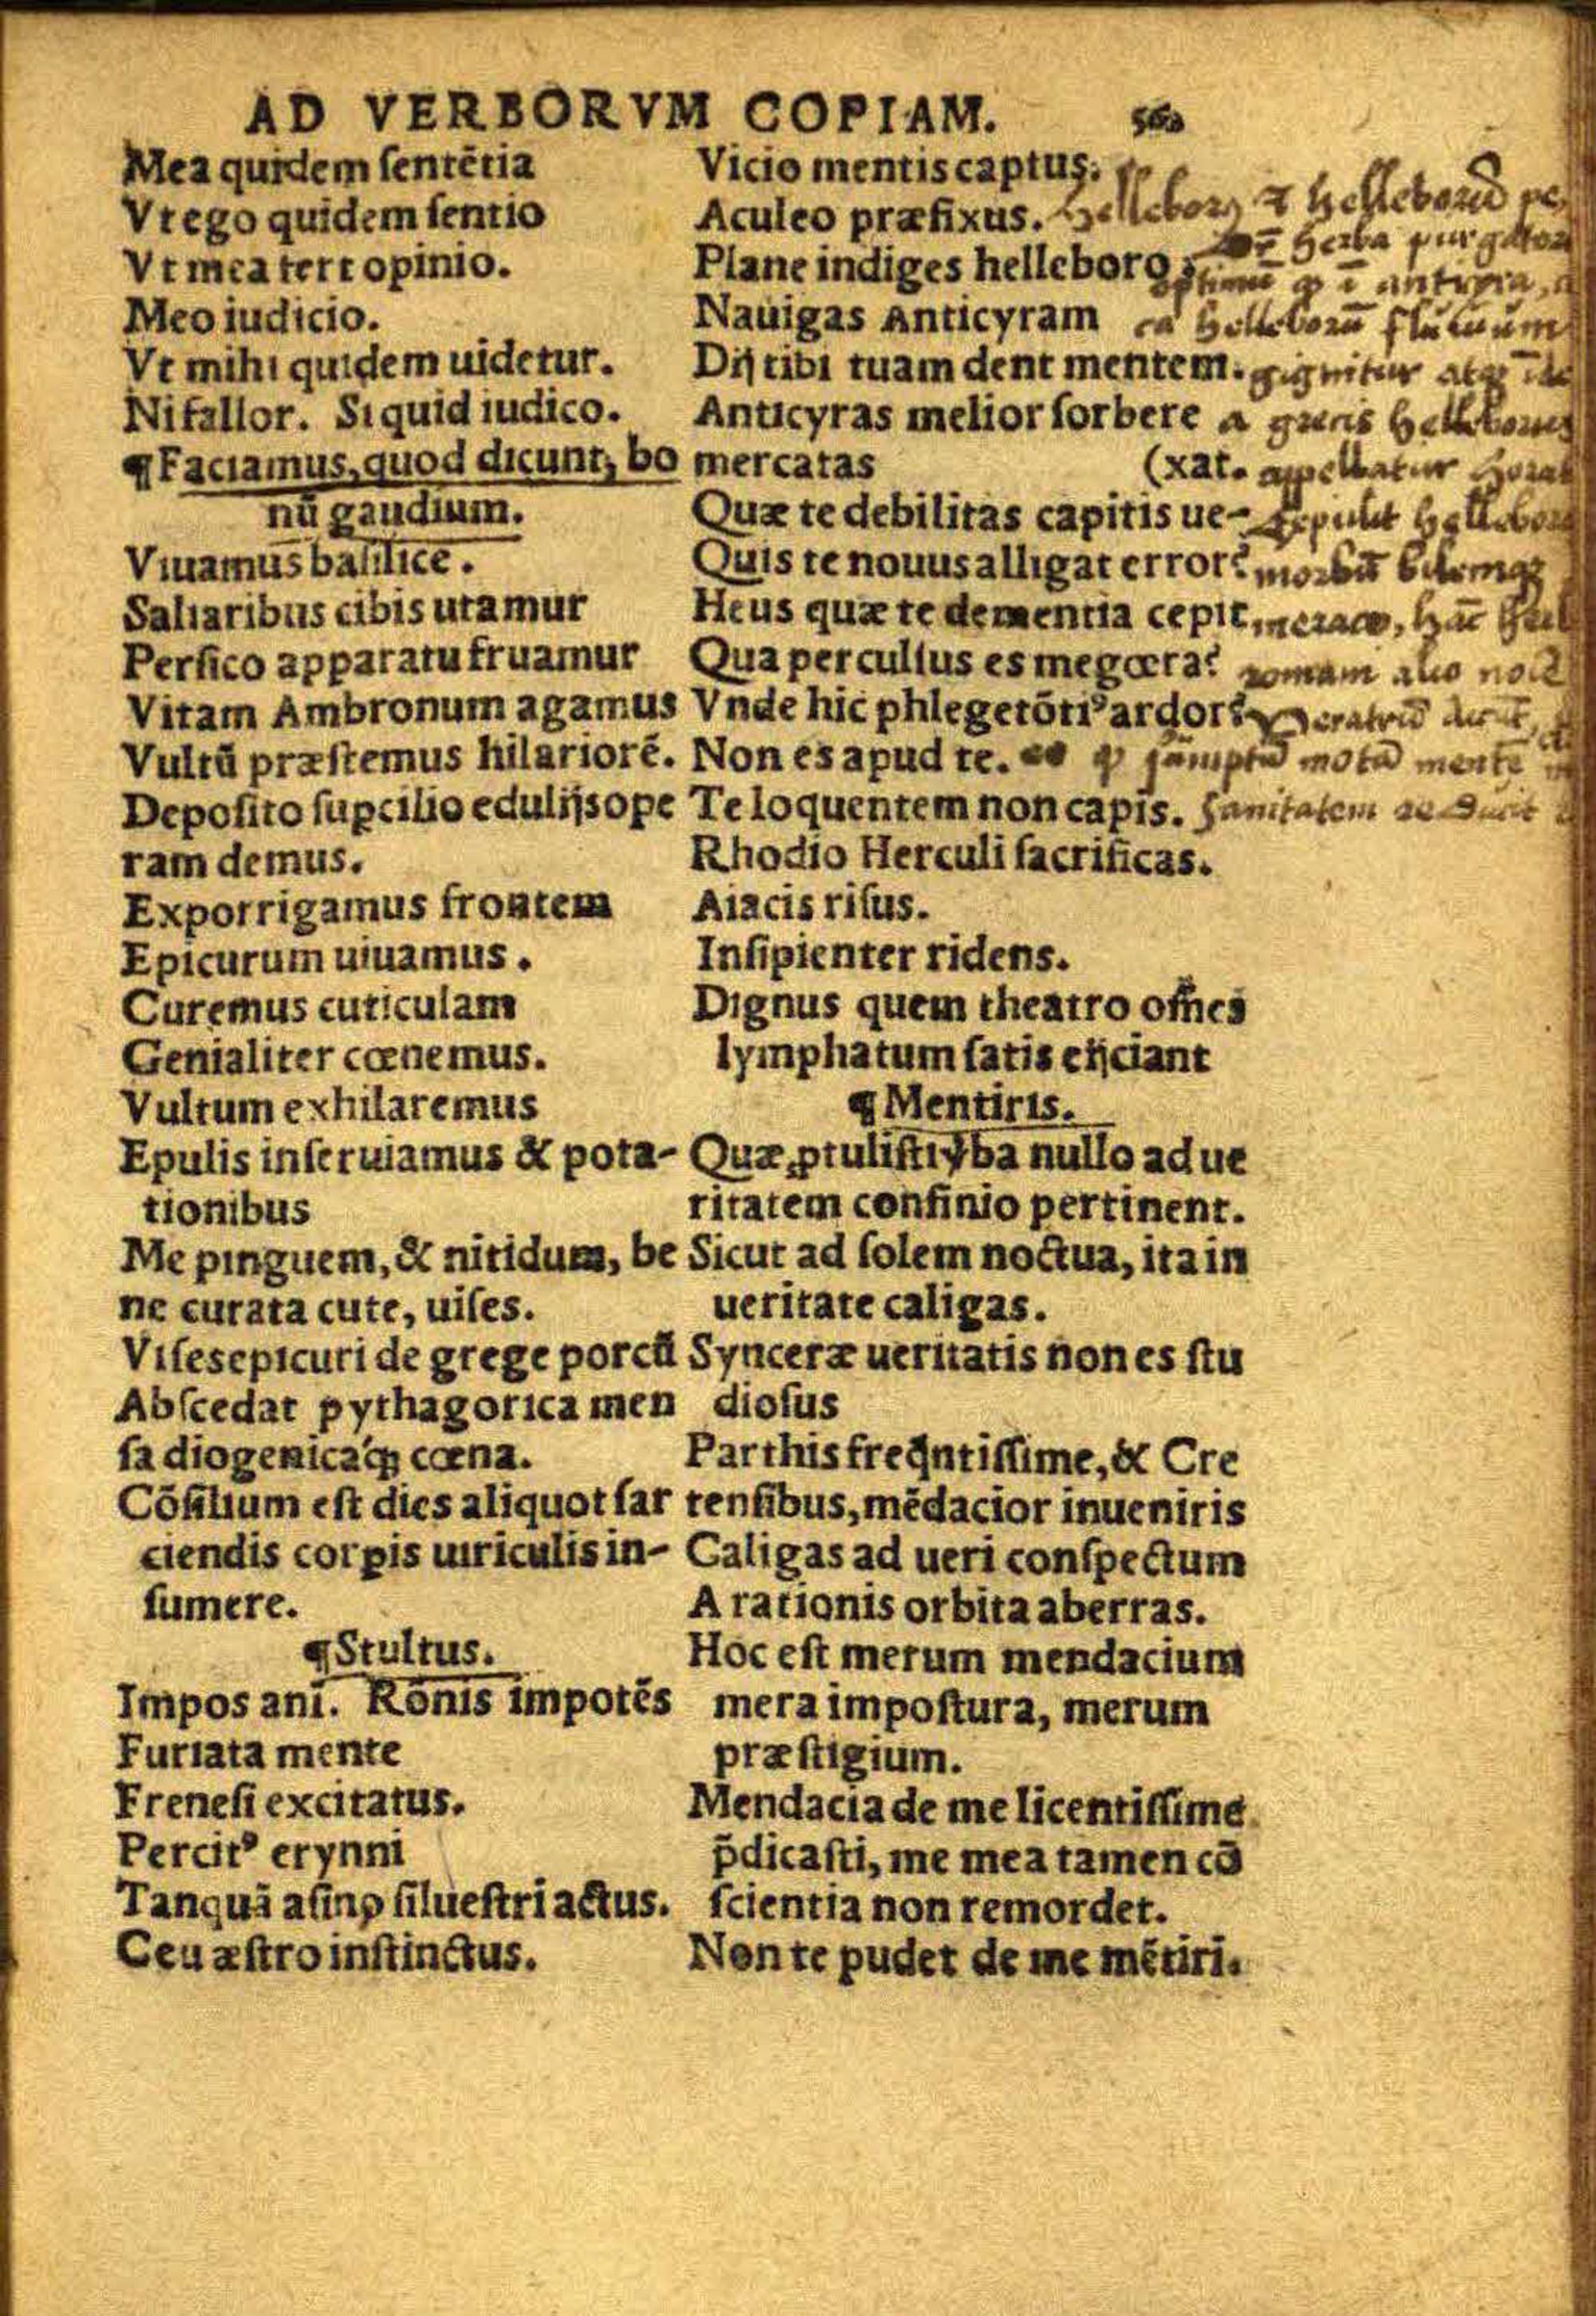 AD VERBORVM COPIAM.
Mea quidem ſentētia
Vt ego quidem ſentio
Vt mea fert opinio.
Meo iudicio.
Vt mihi quidem uidetur.
Ni fallor. Si quid iudico.
¶Faciamus, quod dicunt, bo
nū gaudium.
Viuamus baſilice.
Saliaribus cibis utamur
Perſico apparatu fruamur
Vitam Ambronum agamus
Vultū præſtemus hilariorē.
Depoſito ſuꝑcilio edulijs ope
ram demus.
Exporrigamus frontem
Epicurum uiuamus.
Curemus cuticulam
Genialiter cœnemus.
Vultum exhilaremus
Epulis inſeruiamus & pota-
tionibus
Me pinguem, & nitidum, be
ne curata cute, uiſes.
Viſes epicuri de grege porcū
Abſcedat pythagorica men
ſa diogenicáq; cœna.
Cōſilium eſt dies aliquot far
ciendis corꝑis utriculis in-
ſumere.
¶Stultus.
Impos anī. Rōnis impotēs
Furiata mente
Freneſi excitatus.
Percitꝰ erynni
Tanquā aſino ſilueſtri actus.
Ceu æſtro inſtinctus.
Vicio mentis captus.
Aculeo præfixus.
Plane indiges helleboro
Nauigas Anticyram
Dij tibi tuam dent mentem.
Anticyras melior ſorbere
mercatas (xat.
Quæ te debilitas capitis ue-
Quis te nouus alligat error?
Heus quæ te dementia cepit
Qua perculſus es megœra?
Vnde hic phlegetōtiꝰ ardor?
Non es apud te.
Te loquentem non capis.
Rhodio Herculi ſacrificas.
Aiacis riſus.
Inſipienter ridens.
Dignus quem theatro om̄es
lymphatum ſatis eijciant
¶Mentiris.
Quæ ꝓtuliſti ꝟba nullo ad ue
ritatem confinio pertinent.
Sicut ad ſolem noctua, ita in
ueritate caligas.
Synceræ ueritatis non es ſtu
dioſus
Parthis freq̄ntiſſime, & Cre
tenſibus, mēdacior inueniris
Caligas ad ueri conſpectum
A rationis orbita aberras.
Hoc eſt merum mendacium
mera impoſtura, merum
præſtigium.
Mendacia de me licentiſſime
p̄dicaſti, me mea tamen cō
ſcientia non remordet.
Non te pudet de me mētiri.
herba purgator
gignitur
a grecis
appellatur
morbū bilemq;
sanitatem